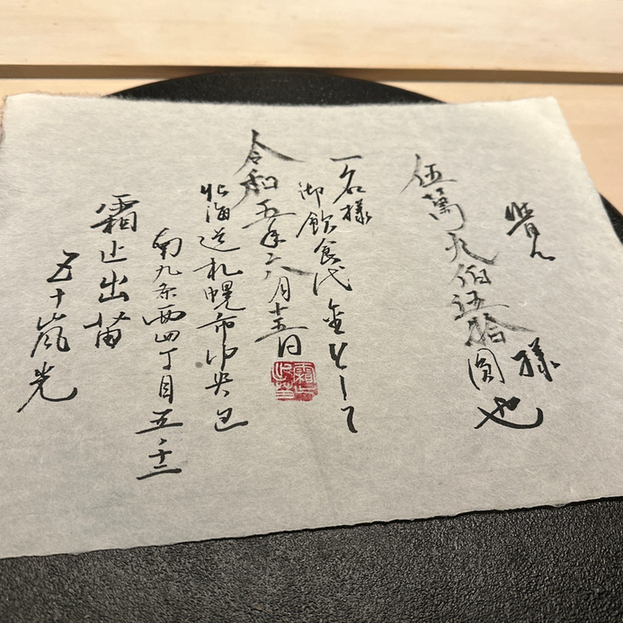 覚
様
伍萬九佰伍拾圓也
一名様
御飲食代金として
令和五年六月十五日
北海道札幌市中央区
南九条西四丁目五-十二
霜止出苗
五十嵐光